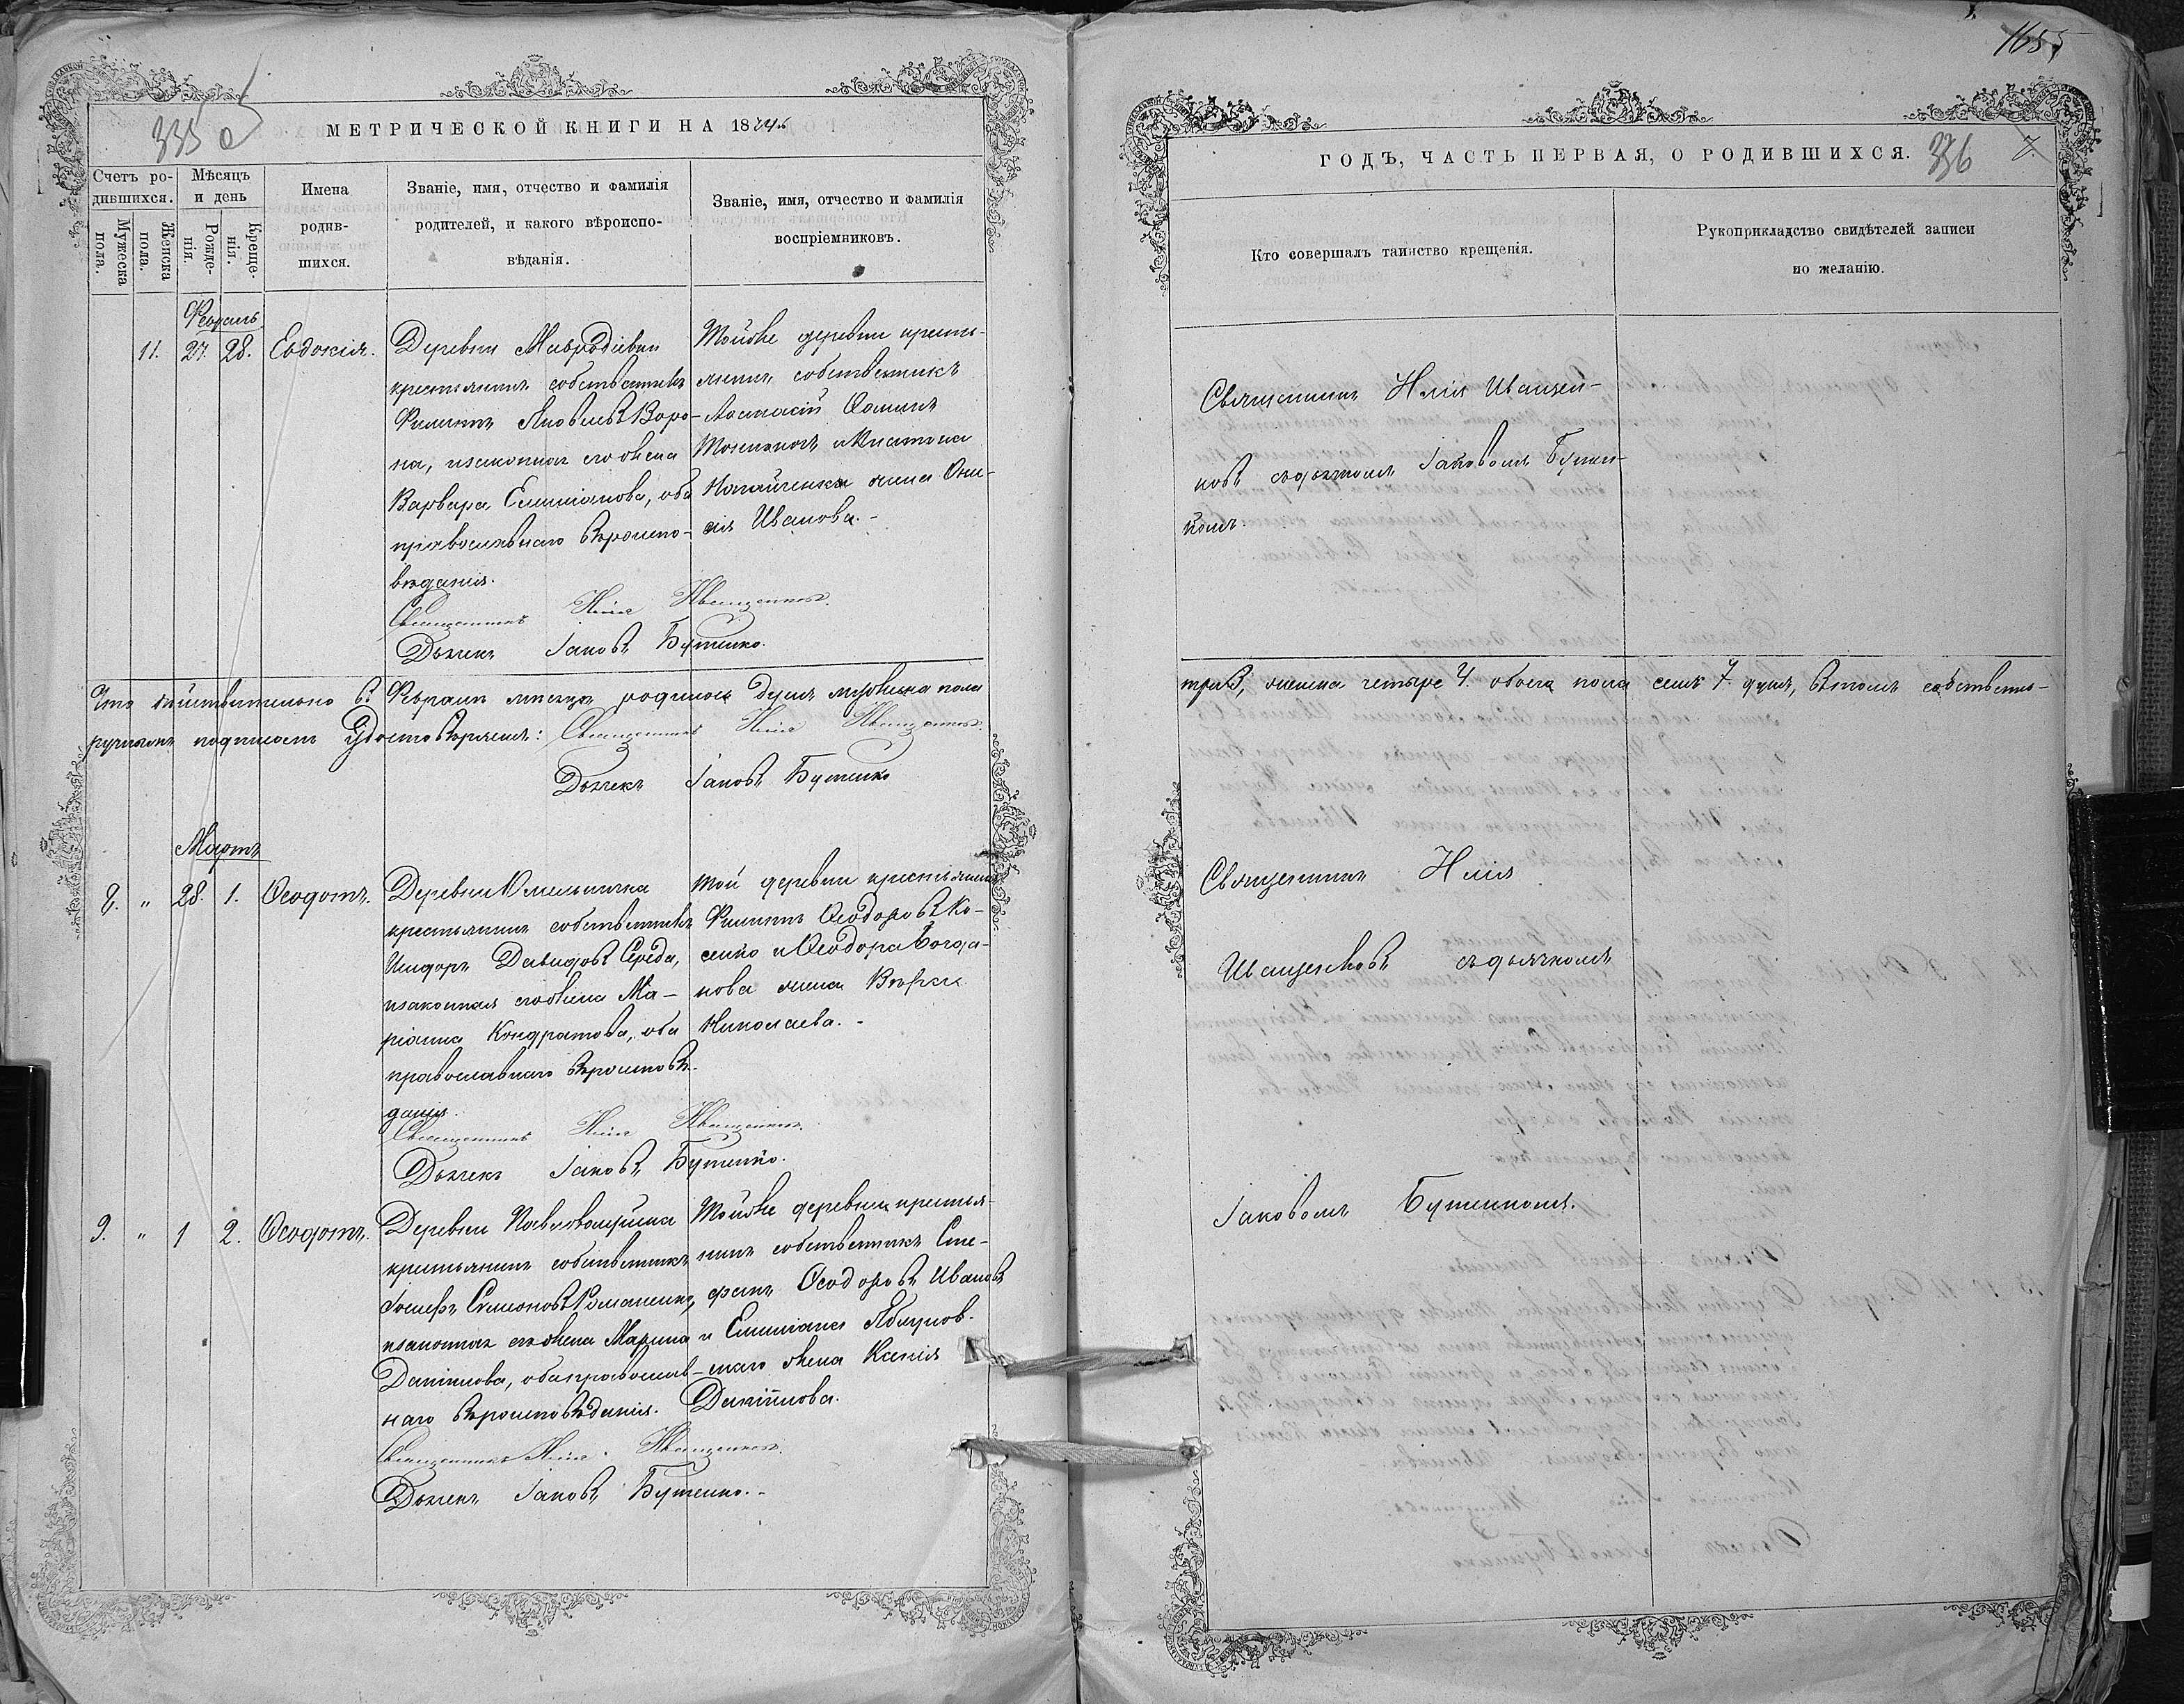 1655
335
МЕТРИЧЕСКОЙ КНИГИ НА 1874
Счетъ ро-
дившихся.
Мужеска
пола.
Женска
пола.
Мѣсяцъ
и день
Рожде-
нія.
Креще-
нія.
Имена
родив-
шихся.
Званіе, имя, отчество и фамилія
родителей, и какого вѣроиспо-
вѣданія.
Званіе, имя, отчество и фамилія
воспріемниковъ.
11. 27. 28. Евдокія.
Деревни
крестьянинъ собственникъ
Филиппъ Яковлевъ Воро-
на, и законная его жена
Варвара Емиліанова, оба
православнаго вѣроиспо-
вѣданія.
Священникъ Илія Иващенковъ.
Дьячекъ Іаковъ Бутенко.
Тойже деревни кресть-
янинъ собственникъ
Аѳанасій Ѳоминъ
жена Они-
сія Иванова.-
Что дѣйствительно въ Февралѣ мѣсяцѣ родилось душъ мужеска пола
ручнымъ подписомъ Удостовѣряемъ: Священникъ Илія Иващенковъ.
Дьячекъ Іаковъ Бутенко
Мартъ
8. " 28. 1. Ѳеодотъ.
Деревни
крестьянинъ собственникъ
Исидоръ Давидовъ Середа,
и законная его жена Ма-
ріанна Кондратова, оба
православнаго вѣроисповѣ-
данія.
Священникъ Илія Иващенковъ.
Дьячекъ Іаковъ Бутенко.
той деревни крестьянинъ
Филиппъ Ѳеодоровъ Ко-
сенко и Ѳеодора Богда-
нова жена Вѣра
Николаева.-
9. " 1 2. Ѳеодотъ.
Деревни Павловщина
крестьянинъ собственникъ
Іосифъ Симоновъ Романенко,
и законная его жена Марина
Даніилова, оба православ-
наго вѣроисповѣданія.
Священникъ Илія Иващенковъ.
Дьячекъ Іаковъ Бутенко.-
Тойже деревни крестья-
нинъ собственникъ Сте-
фанъ Ѳеодоровъ Ивановъ
и Емиліана
жена Ксенія
Даніилова.
ГОДЪ, ЧАСТЬ ПЕРВАЯ, О РОДИВШИХСЯ.
336
7.
Кто совершалъ таинство крещенія.
Рукоприкладство свидѣтелей записи
по желанію.
Священникъ Илія Иващен-
ковъ съ дьячкомъ Іаковомъ Бутен-
комъ.
три 3, женска четыре 4. обоего пола семь 7. душъ, въ томъ собственно-
Священникъ Илія
Иващенковъ съ дьячкомъ
Іаковомъ Бутенкомъ.